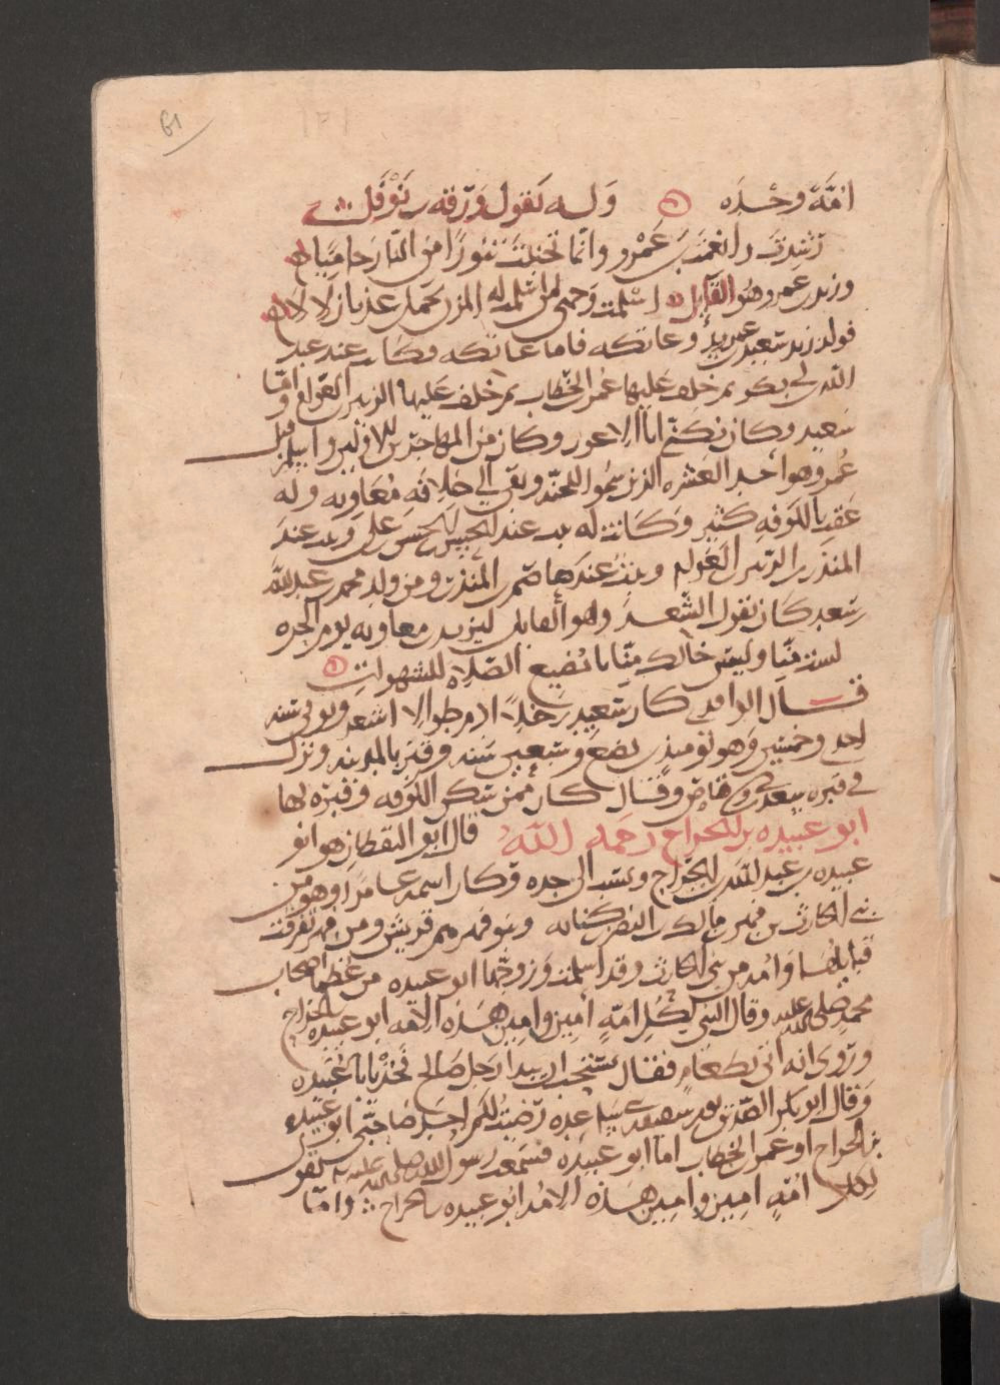 61
أمة وحده وله يقول ورقة بن نوفل
رشدت وأنعمت بن عمرو وإنما تجنبت تنورا من النار حاميا
وزيد بن عمرو هو القائل أسلمت وجهي لمن أسلمت له المزن تحمل عذبا زلالا
فولد زيد سعيد بن زيد وعاتكة فأما عاتكة فكانت عند عبد
الله بن أبي بكر ثم خلف عليها عمر بن الخطاب ثم خلف عليها الزبير بن العوام وأما
سعيد وكان يكنى أبا الأعور وكان من المهاجرين الأولين وأسلم قبل
عمر وهو أحد العشرة الذين سموا للجنة وبقي إلى خلافة معاوية وله
عقب بالكوفة كثير وكانت له بنت عند الحسن بن الحسن بن علي وبنت عند
المنذر بن الزبير بن العوام وبنت عند عاصم بن المنذر ومن ولده محمد بن عبد الله
بن سعيد كان يقول الشعر وهو القائل ليزيد بن معاوية يوم الحرة
لست منا وليس خالك منا يا مضيع الصلاة للشهوات
قال الواقدي كان سعيد رجلا آدم طوالا أشعر وتوفي سنة
إحدى وخمسين وهو يومئذ بضع وسبعين سنة وقبر بالمدينة ونزل
في قبره سعد بن أبي وقاص وقال كان ممن سكن الكوفة وقبره بها
أبو عبيدة بن الجراح رحمه الله قال أبو اليقظان هو أبو
عبيدة بن عبد الله بن الجراح ونسب إلى جده وكان اسمه عامرا وهو من
بني الحارث بن فهر بن مالك بن النضر بن كنانة وبنو فهر هم قريش ومن فهر تفرقت
قبائلها وأمه من بني الحارث وقد أسلمت وزوجها أبو عبيدة من عظماء أصحاب
محمد صلى الله عليه وقال النبي لكل أمة أمين وأمين هذه الأمة أبو عبيدة بن الجراح
وروي أنه أتي بطعام فقال يستحب أن يبدأ رجل صالح فخذ يا أبا عبيدة
وقال أبو بكر الصديق يوم سقيفة بني ساعدة رضيت لكم أحد صاحبي أبو عبيدة
بن الجراح أو عمر بن الخطاب أما أبو عبيدة فسمعت رسول الله صلى الله عليه يقول
لكل أمة أمين وأمين هذه الأمة أبو عبيدة بن الجراح وأما